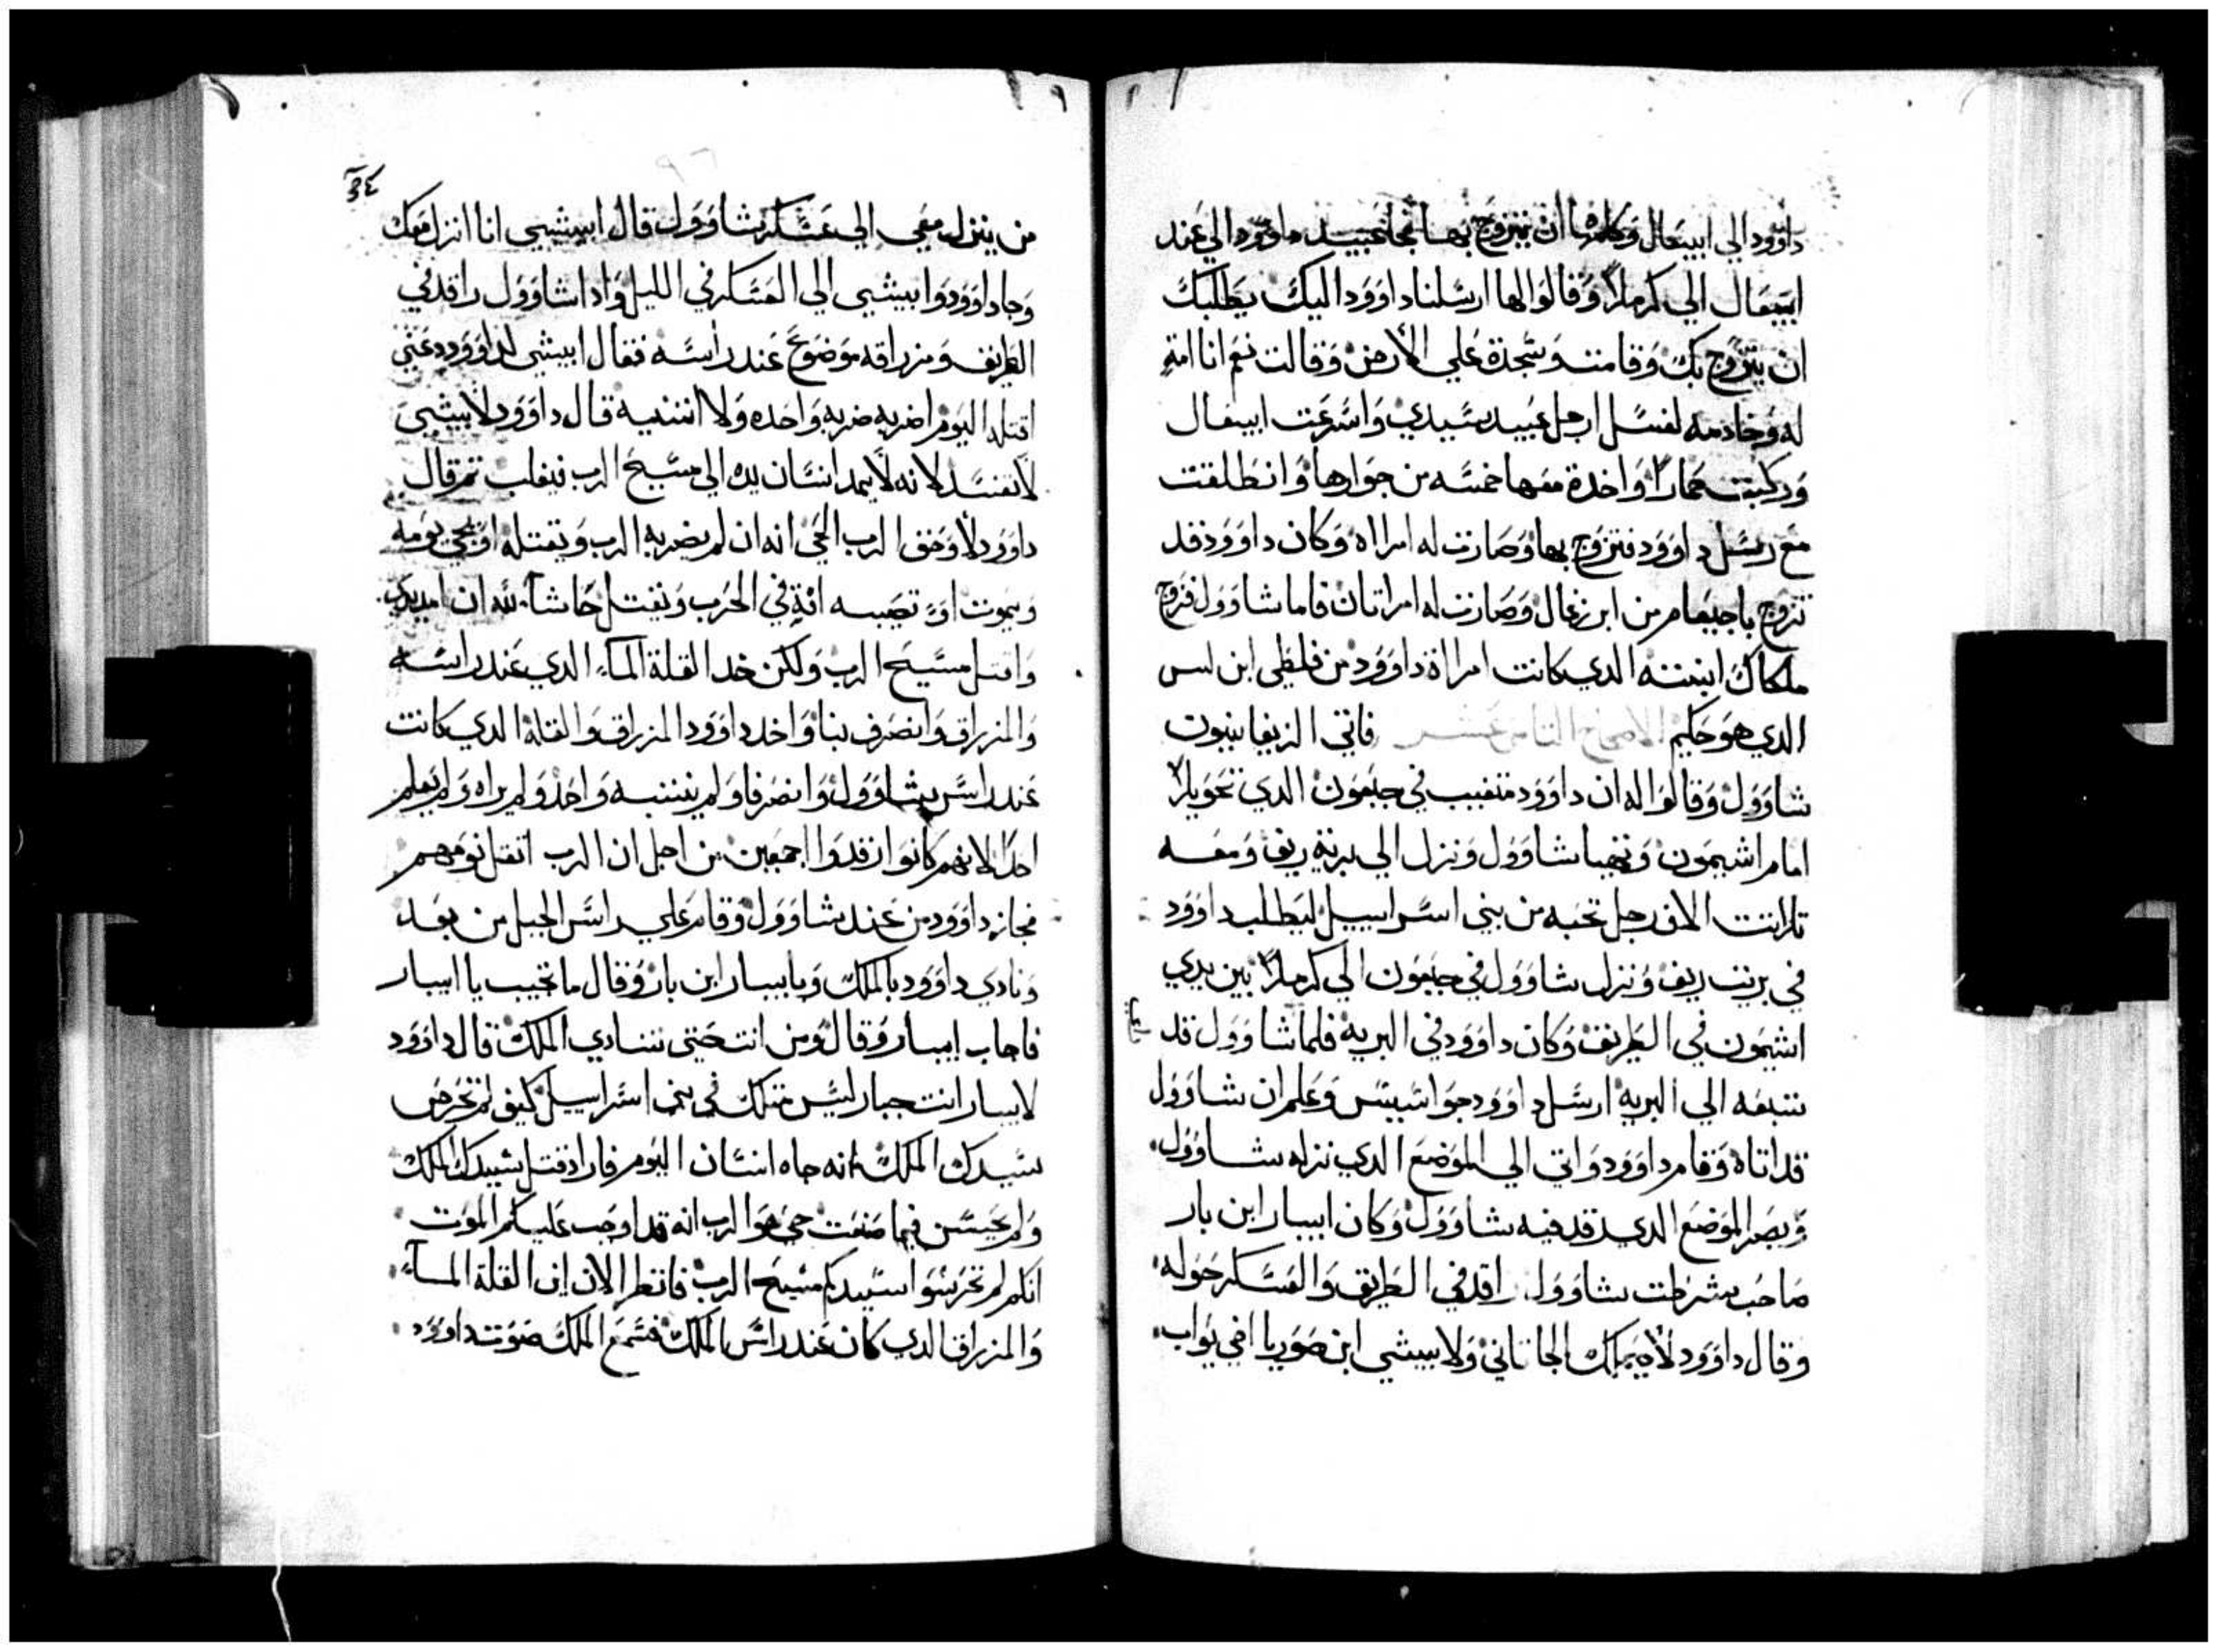 داوود الي ابيغال وكلمها ان يتزوج بها فجا عبيد داوود الي عند
ابيغال الي كرملا وقالوا لها ارسلنا داوود اليك يطلبك
ان يتزوج بك وقامت وسجدة علي الارض وقالت نعم انا امة
له وخادمه لغسل ارجل عبيد سيدي واسرعت ابيغال
وركبت حمارا واخدة معها خمسه من جوارها وانطلقت
مع رسل داوود فتزوج بها وصارت له امراه وكان داوود قد
تزوج باجيعام من ابن زغال وصارت له امراتان فاما شاوول فزوج
ملكاك ابنته الدي كانت امراة داوود من فلطي ابن لس
الدي هو حكيم الاصحاح الثامن عشر فاتي الزيفانيون
شاوول وقالوا له ان داوود متغيب في جبعون الدي نحو يلا
امام اشيمون وتهيا شاوول ونزل الي برية ريف ومعه
تلاتت الاف رجل نخبه من بني اسراييل ليطلب داوود
في بريت ريف ونزل شاوول في جبعون الي كرملا بين يدي
اشيمون في الطريق وكان داوود في البريه فلما شاوول قد
تبعه الي البريه ارسل داوود جواسيس وعلم ان شاوول
قد اتاه وقام داوود واتي الي الموضع الدي نزله شاوول
وبصر الموضع الدي رقد فيه شاوول وكان ابيبار ابن بار
صاحب شرطت شاوول راقد في الطريق والعسكر حوله
وقال داوود لاحيملك الحاتاني ولابيشي ابن صوريا اخي يواب
34
من ينزل معي الي عسكر شاوول قال ابيشيي انا انزل معك
وجا داوود وابيشيي الي العسكر في الليل وادا شاوول راقد في
الطريق ومزراقه موضوع عند راسه فقال ابيشي لداوود دعني
اقتله اليوم اضربه ضربه واحده ولا اتنيه قال داوود لابيشي
لا تفسد لانه لا يمد انسان يده الي مسيح الرب فيفلب تم قال
داوود لا وحق الرب الحي انه ان لم يضربه الرب ويقتله او يجي يومه
ويموت او تصيبه افة في الحرب ويقتل حاشا لله ان امد يدي
واقتل مسيح الرب ولكن خد القلة الماء الدي عند راسه
والمزراق وانصرف بنا واخد داوود المزراق والقلة الدي كانت
عند راس شاوول وانصرفا ولم ينتبه واحد ولم يراه ولم يعلم
احد لانهم كانوا رقدوا اجمعين من اجل ان الرب اتقل نومهم
فجاز داوود من عند شاوول وقام علي راس الجبل من بعد
ونادي داوود بالملك وبابيبار ابن بار وقال ما تجيب يا ابيبار
فاجاب ابيبار وقال ومن انت حتي تنادي الملك قال داوود
لابيبار انت جبار ليس متلك في بني اسراييل كيف لم تحرص
سيدك الملك انه جاه انسان اليوم فاراد قتل سيدك الملك
ولم تحسن فيما صنعت حي هو الرب انه قد اوجب عليكم الموت
انكم لم تحرسوا سيدكم مسيح الرب فانظر الان اين القلة الماء
والمزراق الدي كان عند راس الملك فسمع الملك صوت داوود